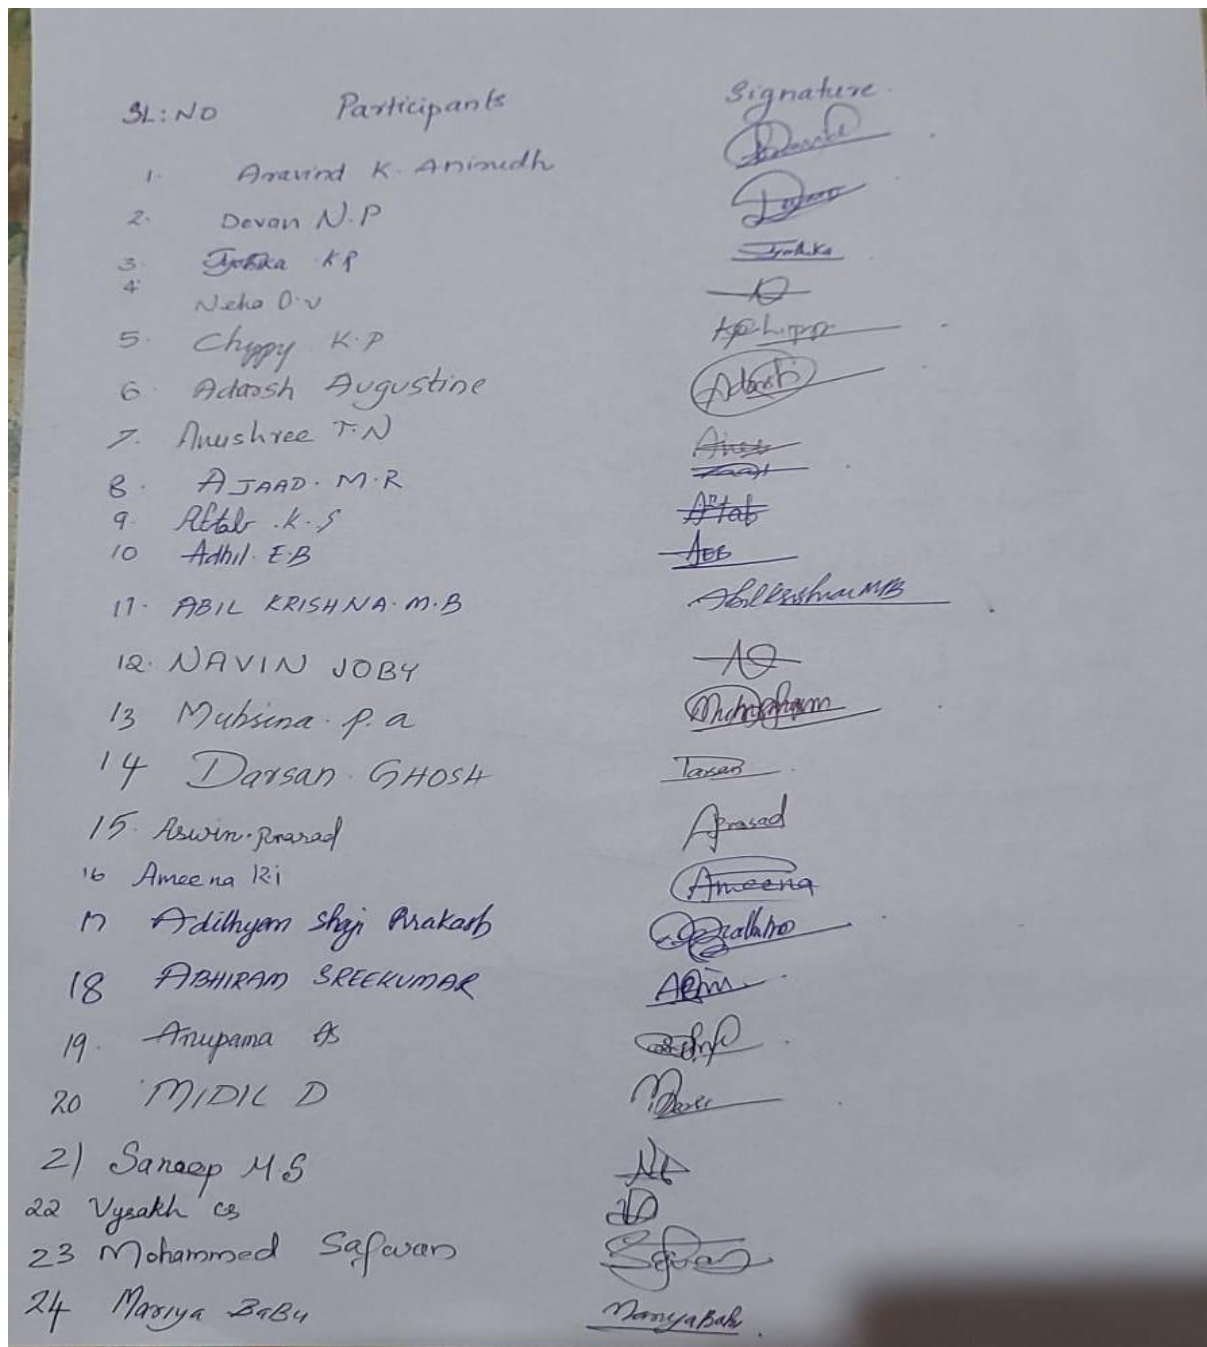 SL: NO Participants Signature
1. Aravind K. Anirudh
2. Devan N.P
3. Jyothika K R Jyothika
4. Neha O.V
5. Chyppy K.P
6. Adarsh Augustine Adarsh
7. Anushree T.N
8. AJAAD. M.R
9. Aftab .K.S Aftab
10 Adhil. E.B AEB
11. ABIL KRISHNA. M.B Abil Krishna MB
12. NAVIN JOBY
13 Mubsina. P.a
14 Darsan GHOSH
15. Aswin. Prasad Aprasad
16 Ameena K.i Ameena
17 Adithyan Shaji Prakash
18 ABHIRAM SREEKUMAR
19. Anupama AS
20 MIDIL D
21 M S
22 Vysakh cs
23 Mohammed Safwan Safwan
24 Mariya BaBu Mariya Babu